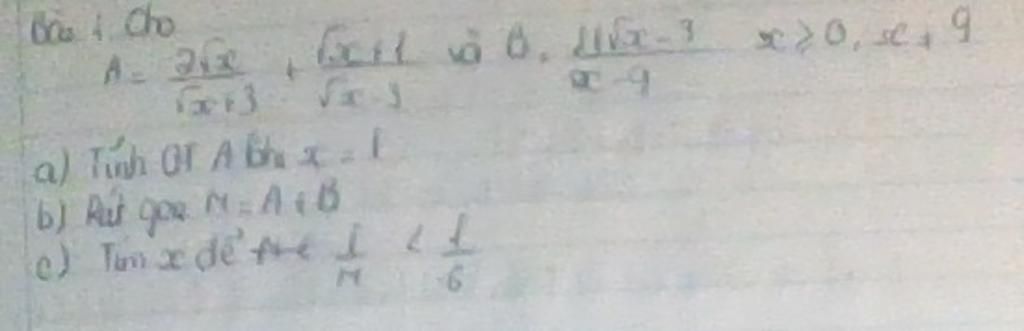 Bài 1. Cho
A = \frac{2\sqrt{x}}{\sqrt{x}+3} + \frac{\sqrt{x}+1}{\sqrt{x}-3} và B = \frac{11\sqrt{x}-3}{x-9} x ≥ 0, x ≠ 9
a) Tính GT A khi x = 1
b) Rút gọn M = A + B
c) Tìm x để \frac{1}{M} < \frac{1}{6}